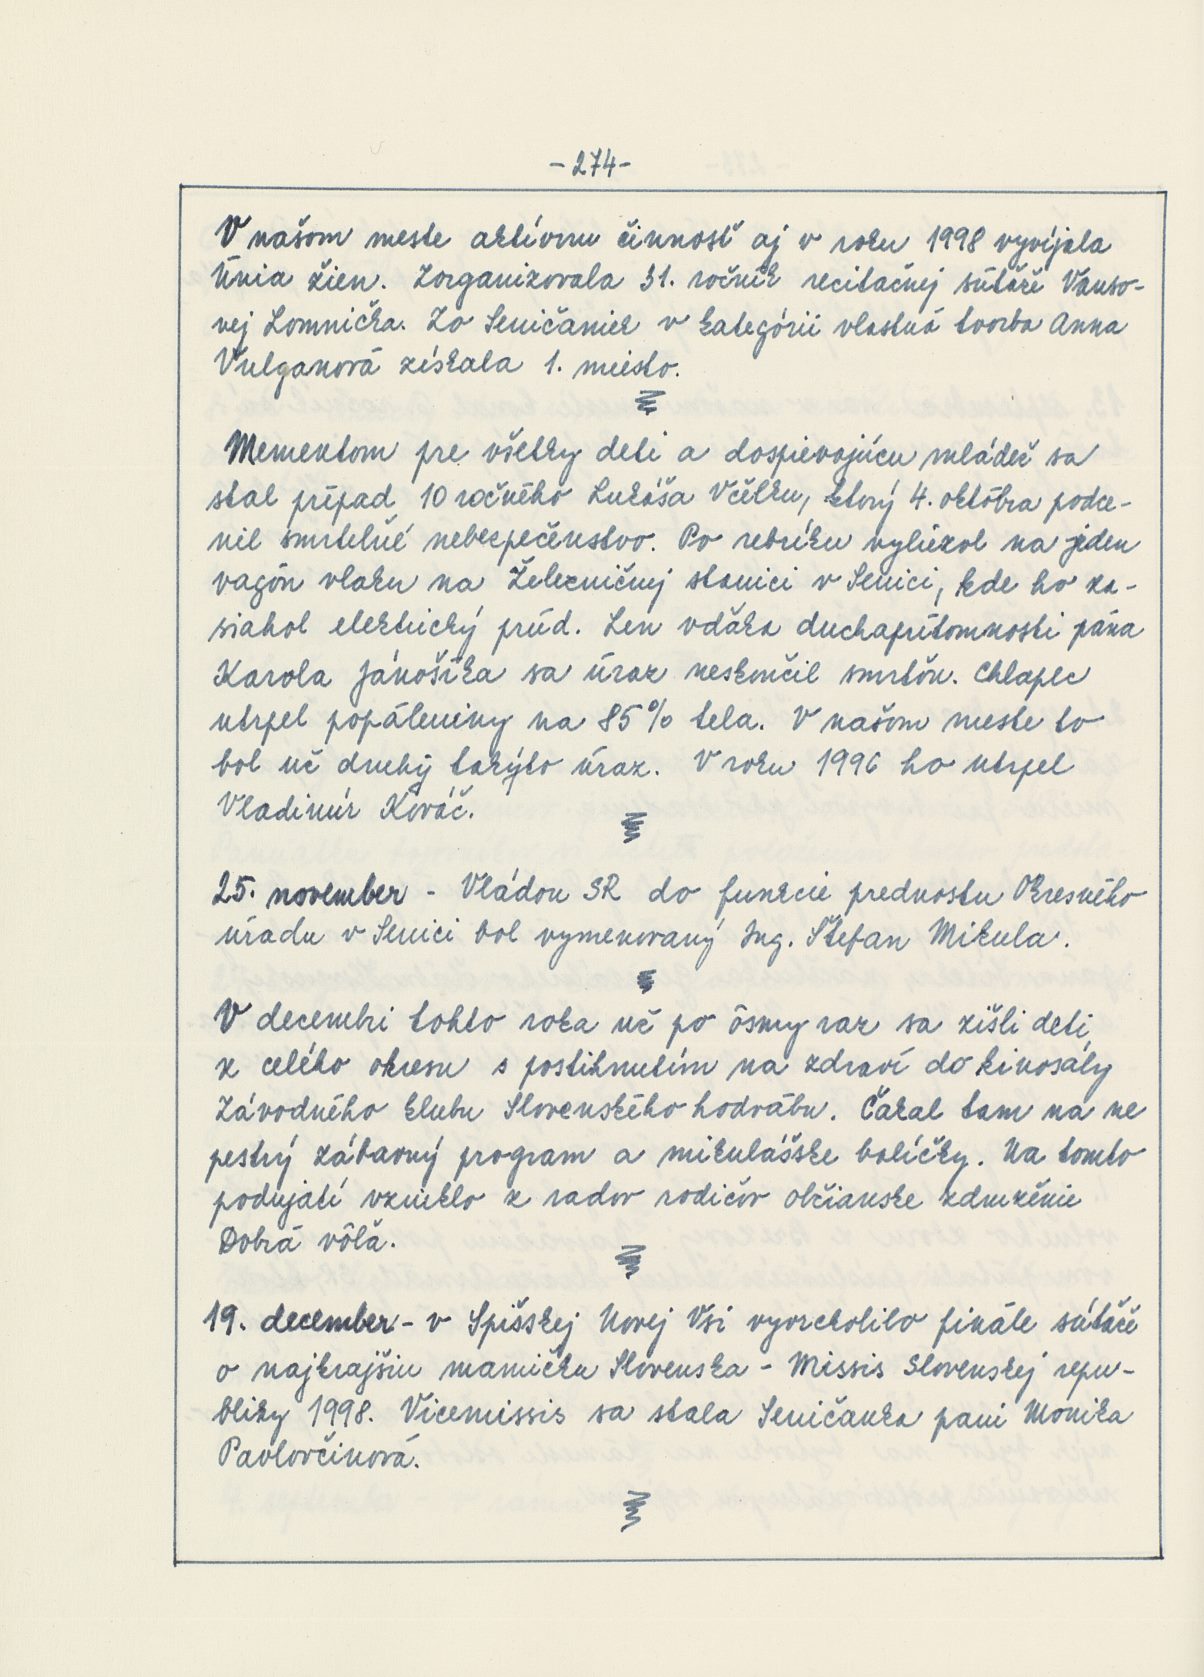 -274-
V našom meste aktívnu činnosť aj v roku 1998 vyvíjala
Únia žien. Zorganizovala 31. ročník recitačnej súťaže Vanso-
vej Lomnička. Zo Seničaniek v kategórii vlastná tvorba Anna
Vulganová získala 1. miesto.
Mementom pre všetky deti a dospievajúcu mládež sa
stal prípad 10 ročného Lukáša Včelku, ktorý 4. októbra podce-
nil smrteľné nebezpečenstvo. Po rebríku vyliezol na jeden
vagón vlaku na Železničnej stanici v Senici, kde ho za-
siahol elektrický prúd. Len vďaka duchaprítomnosti pána
Karola Jánošíka sa úraz neskončil smrťou. Chlapec
utrpel popáleniny na 85% tela. V našom meste to
bol už druhý takýto úraz. V roku 1996 ho utrpel
Vladimír Kováč.
25. november - Vládou SR do funkcie prednostu Okresného
úradu v Senici bol vymenovaný Ing. Štefan Mikula.
V decembri tohto roka už po ôsmy raz sa zišli deti
z celého okresu s postihnutím na zdraví do kinosály
Závodného klubu Slovenského hodvábu. Čakal tam na ne
pestrý zábavný program a mikulášske balíčky. Na tomto
podujatí vzniklo z radov rodičov občianske združenie
Dobrá vôľa.
19. december - v Spišskej Novej Vsi vyvrcholilo finále súťaže
o najkrajšiu mamičku Slovenska - Missis Slovenskej repu-
bliky 1998. Vicemissis sa stala Seničanka pani Monika
Pavlovčinová.